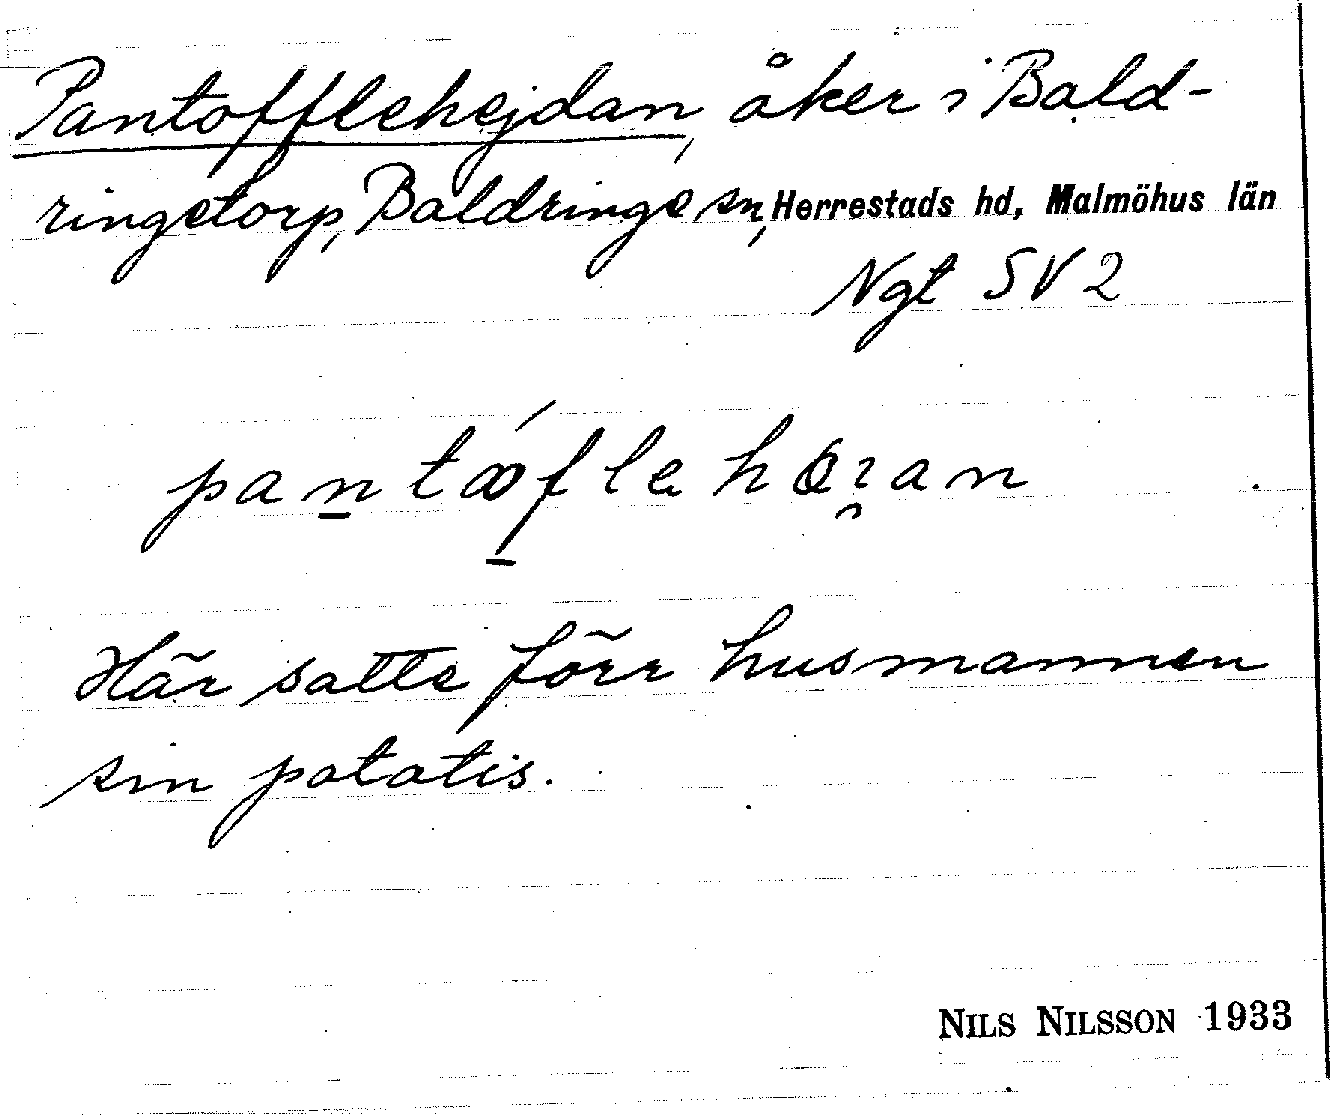 Pantofflehejdan, åker i Bald-
ringetorp, Baldringe sn, Herrestads hd, Malmöhus län
Ngt SV 2
Här satte förr husmannen
sin potatis.
NILS NILSSON 1933